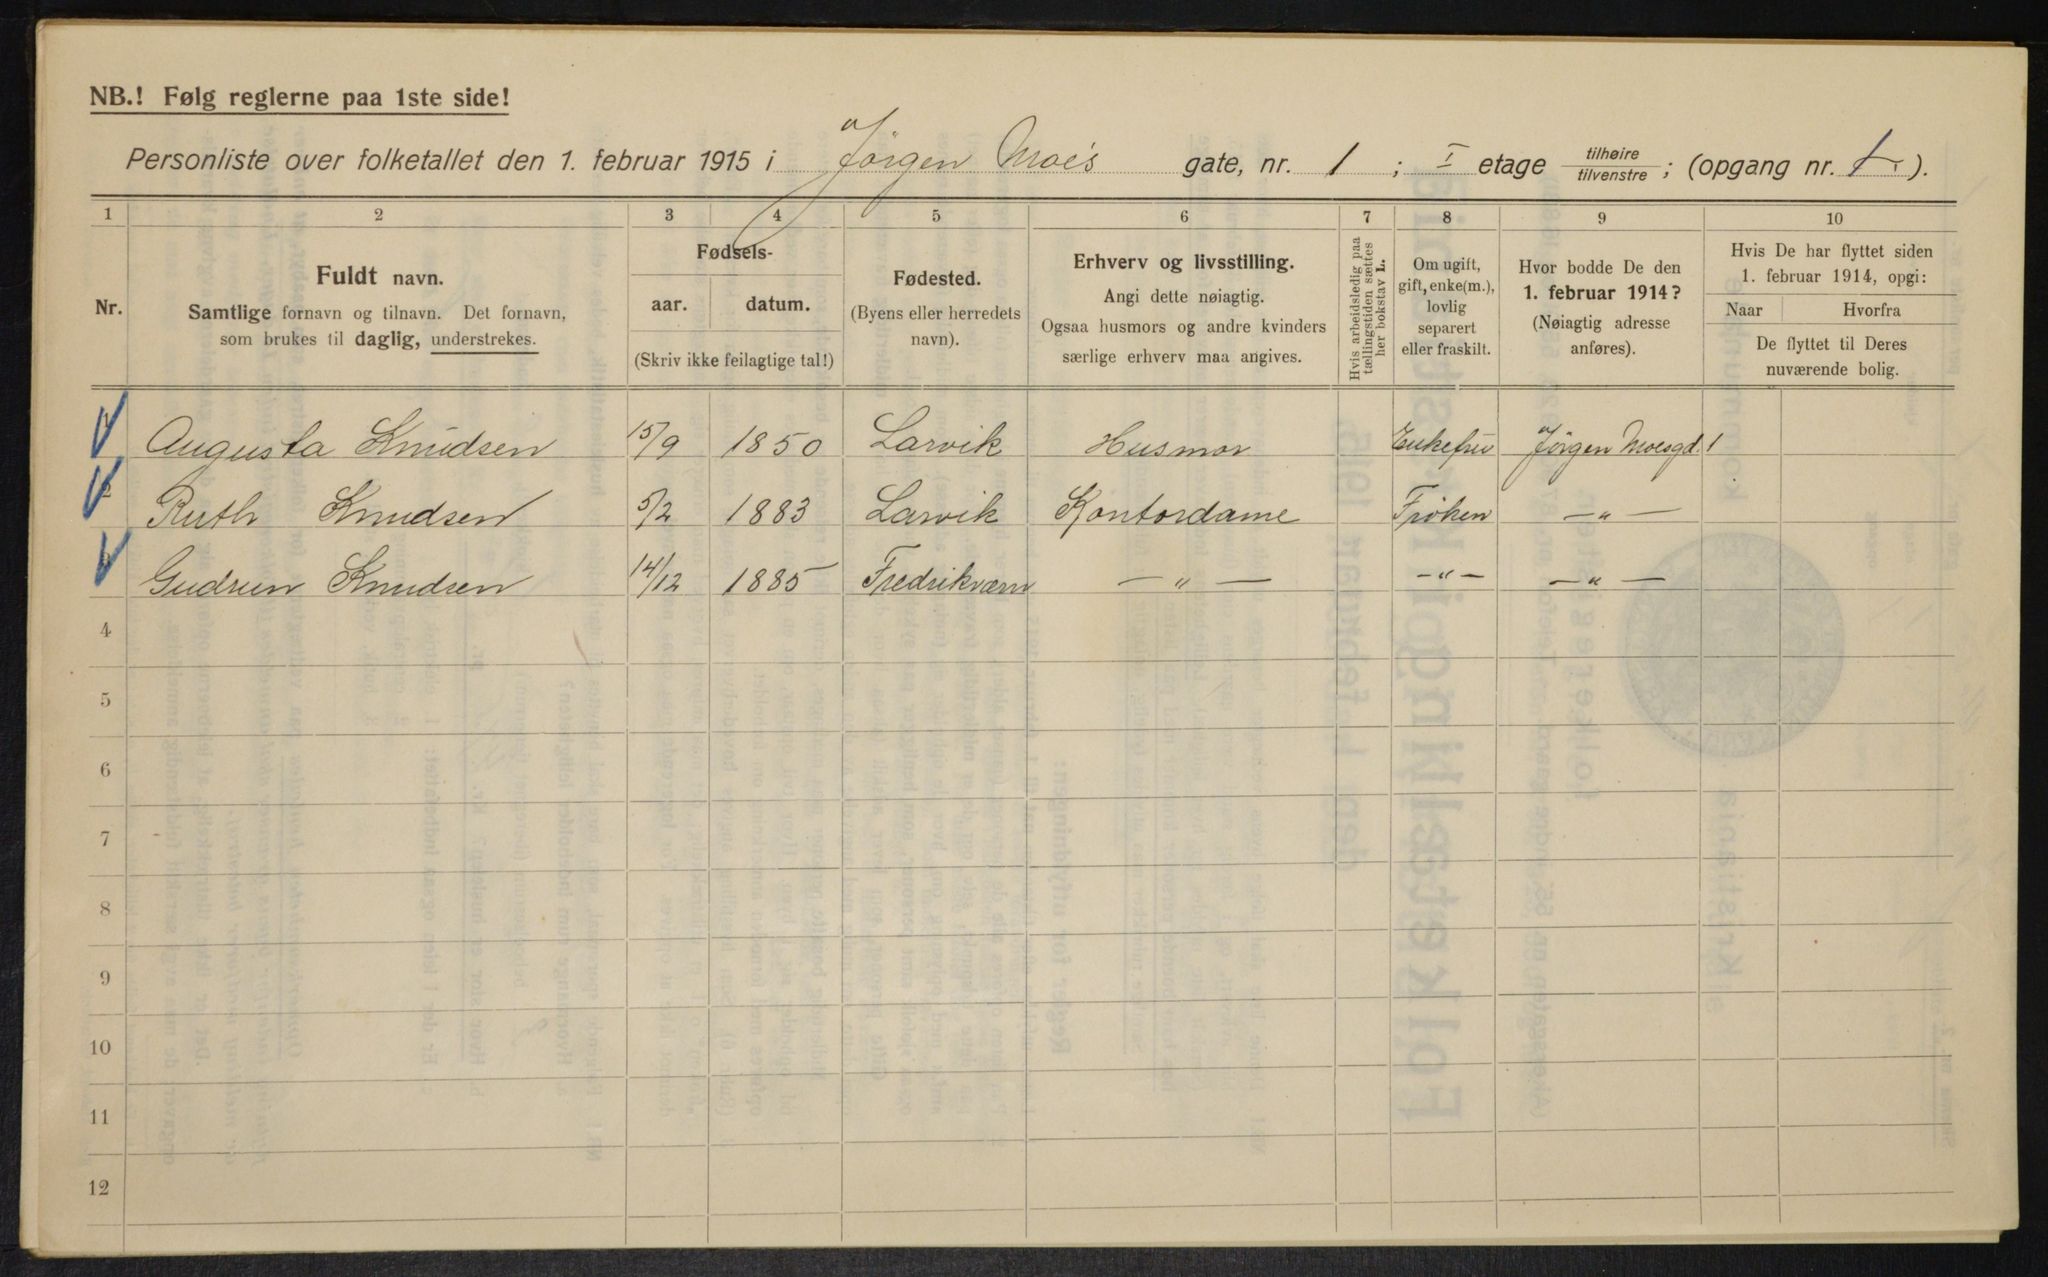 NB.! Følg reglerne paa 1ste side!
Personliste over folketallet den 1. februar 1915 i Jørgen Moe's gate, nr. 1 ; I etage tilhøire / tilvenstre ; (opgang nr. ).
1 2 3 4 5 6 7 8 9 10
Nr.
Fuldt navn.
Samtlige fornavn og tilnavn. Det fornavn,
som brukes til daglig, understrekes.
Fødsels-
aar. datum.
(Skriv ikke feilagtige tal!)
Fødested.
(Byens eller herredets
navn).
Erhverv og livsstilling.
Angi dette nøiagtig.
Ogsaa husmors og andre kvinders
særlige erhverv maa angives.
Hvis arbeidsledig paa
tællingstiden sættes
her bokstav L.
Om ugift,
gift, enke(m.),
lovlig
separert
eller fraskilt.
Hvor bodde De den
1. februar 1914?
(Nøiagtig adresse
anføres).
Hvis De har flyttet siden
1. februar 1914, opgi:
Naar Hvorfra
De flyttet til Deres
nuværende bolig.
1 Augusta Knudsen 15/9 1850 Larvik Husmor Enkefru Jørgen Moesgd. 1
2 Ruth Knudsen 5/2 1883 Larvik Kontordame Frøken — " —
3 Gudrun Knudsen 14/12 1885 Fredriksværn — " — — " — — " —
4
5
6
7
8
9
10
11
12